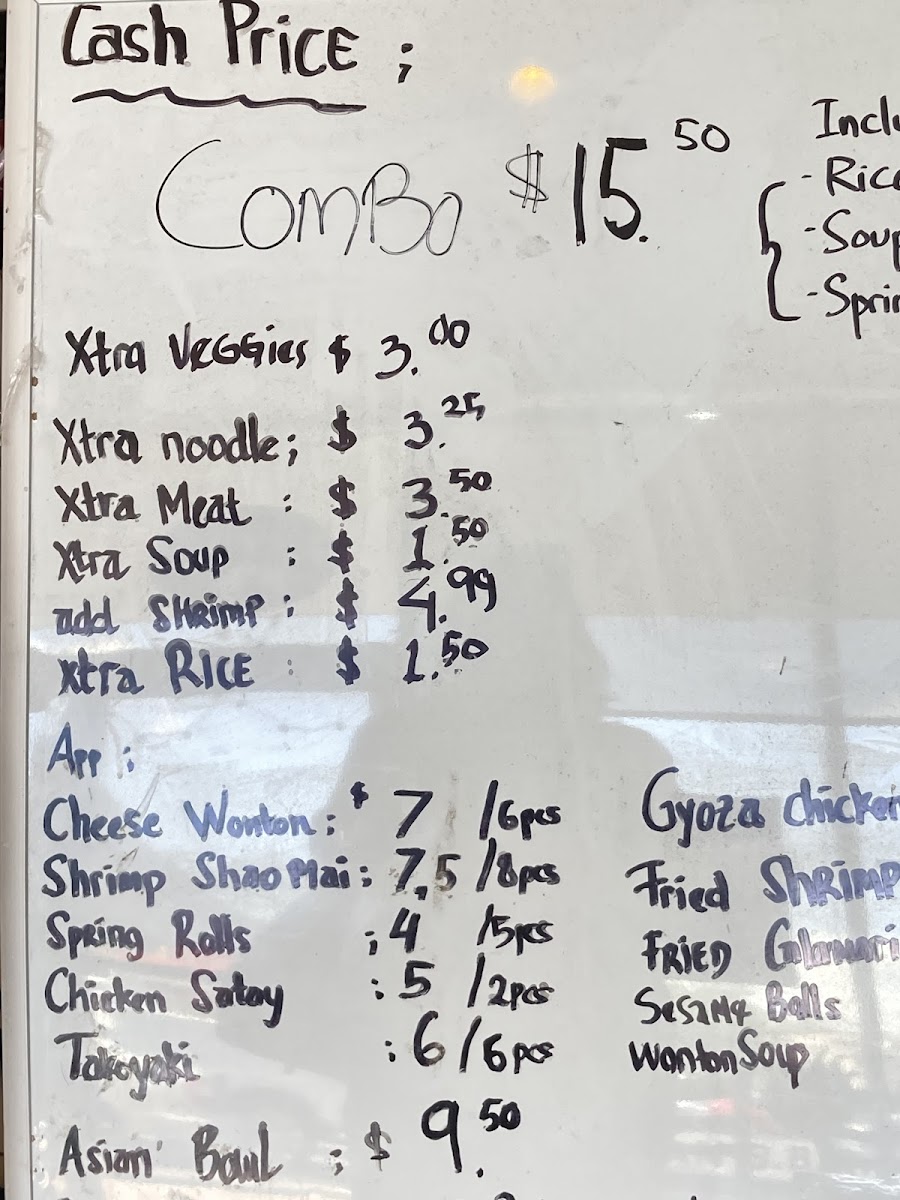 Cash PRICE ;
COMBO $15.50
Inclu
- Rice
- Soup
- Sprin
Xtra VEGGies $ 3.00
Xtra noodle; $ 3.25
Xtra Meat : $ 3.50
Xtra Soup : $ 1.50
add SHRimp : $ 4.99
xtra RICE : $ 1.50
App :
Cheese Wonton : $ 7 /6pcs
Shrimp ShaoMai : 7,5 /8pcs
Spring Rolls ; 4 /5pcs
Chicken Satay : 5 /2pcs
Takoyaki : 6 /6pcs
Asian Bowl ; $ 9.50
Gyoza chicken
Fried SHRIMP
FRIED Calamari
Sesame Balls
Wonton Soup